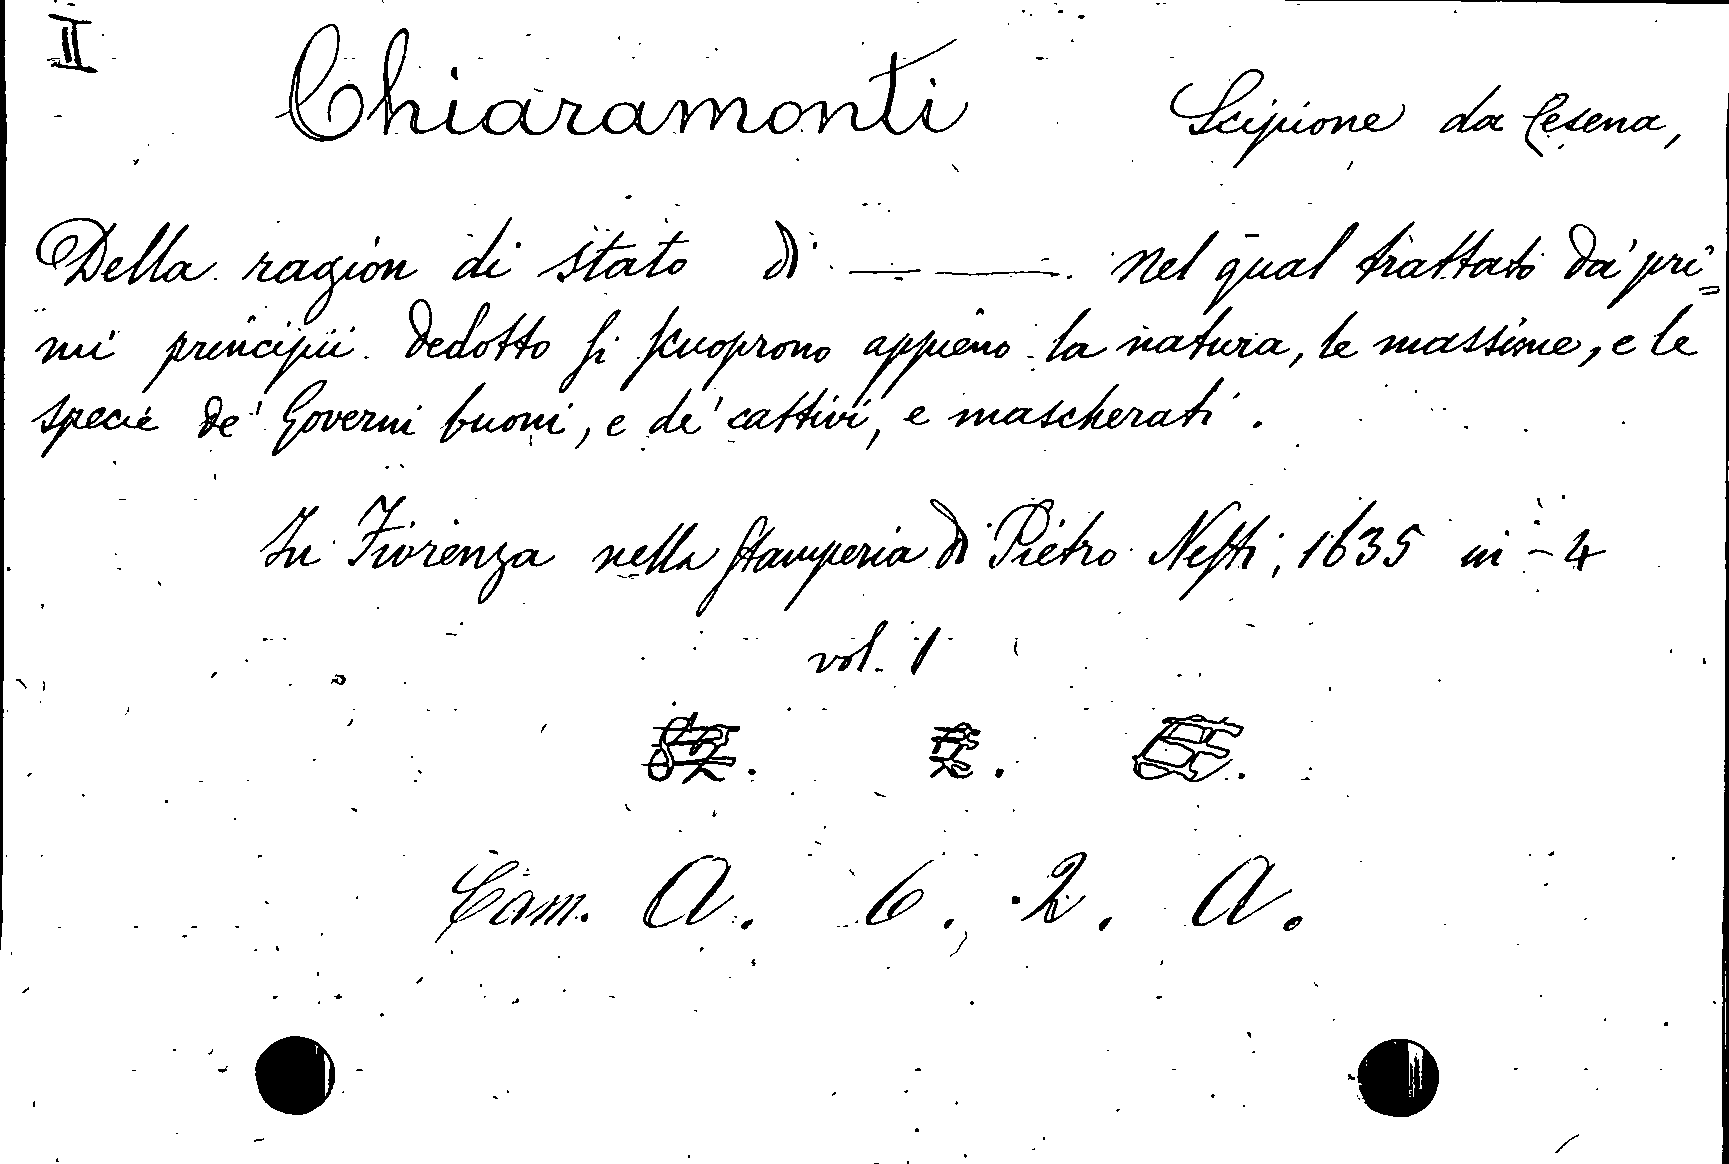 II
Chiaramonti Scipione da Cesena,
Della ragion di stato di — — nel qual trattato da' pri=
mi principii dedotto si scuoprono appieno la natura, le massime, e le
specie de' Governi buoni, e de' cattivi, e mascherati.
In Fiorenza nella Stamperia di Pietro Nesti, 1635 in-4
vol. 1
Cam. A. 6. 2. A.